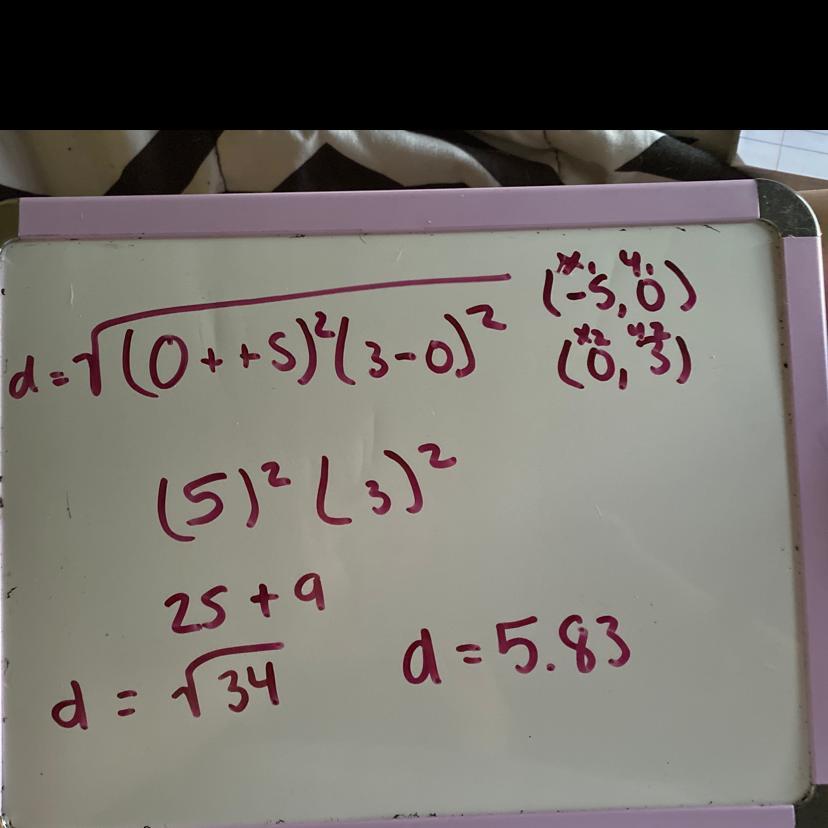 d=√(0++5)²(3-0)²
x₁ y₁
(-5,0)
x2 y2
(0,3)
(5)²(3)²
25+9
d=√34
d=5.83